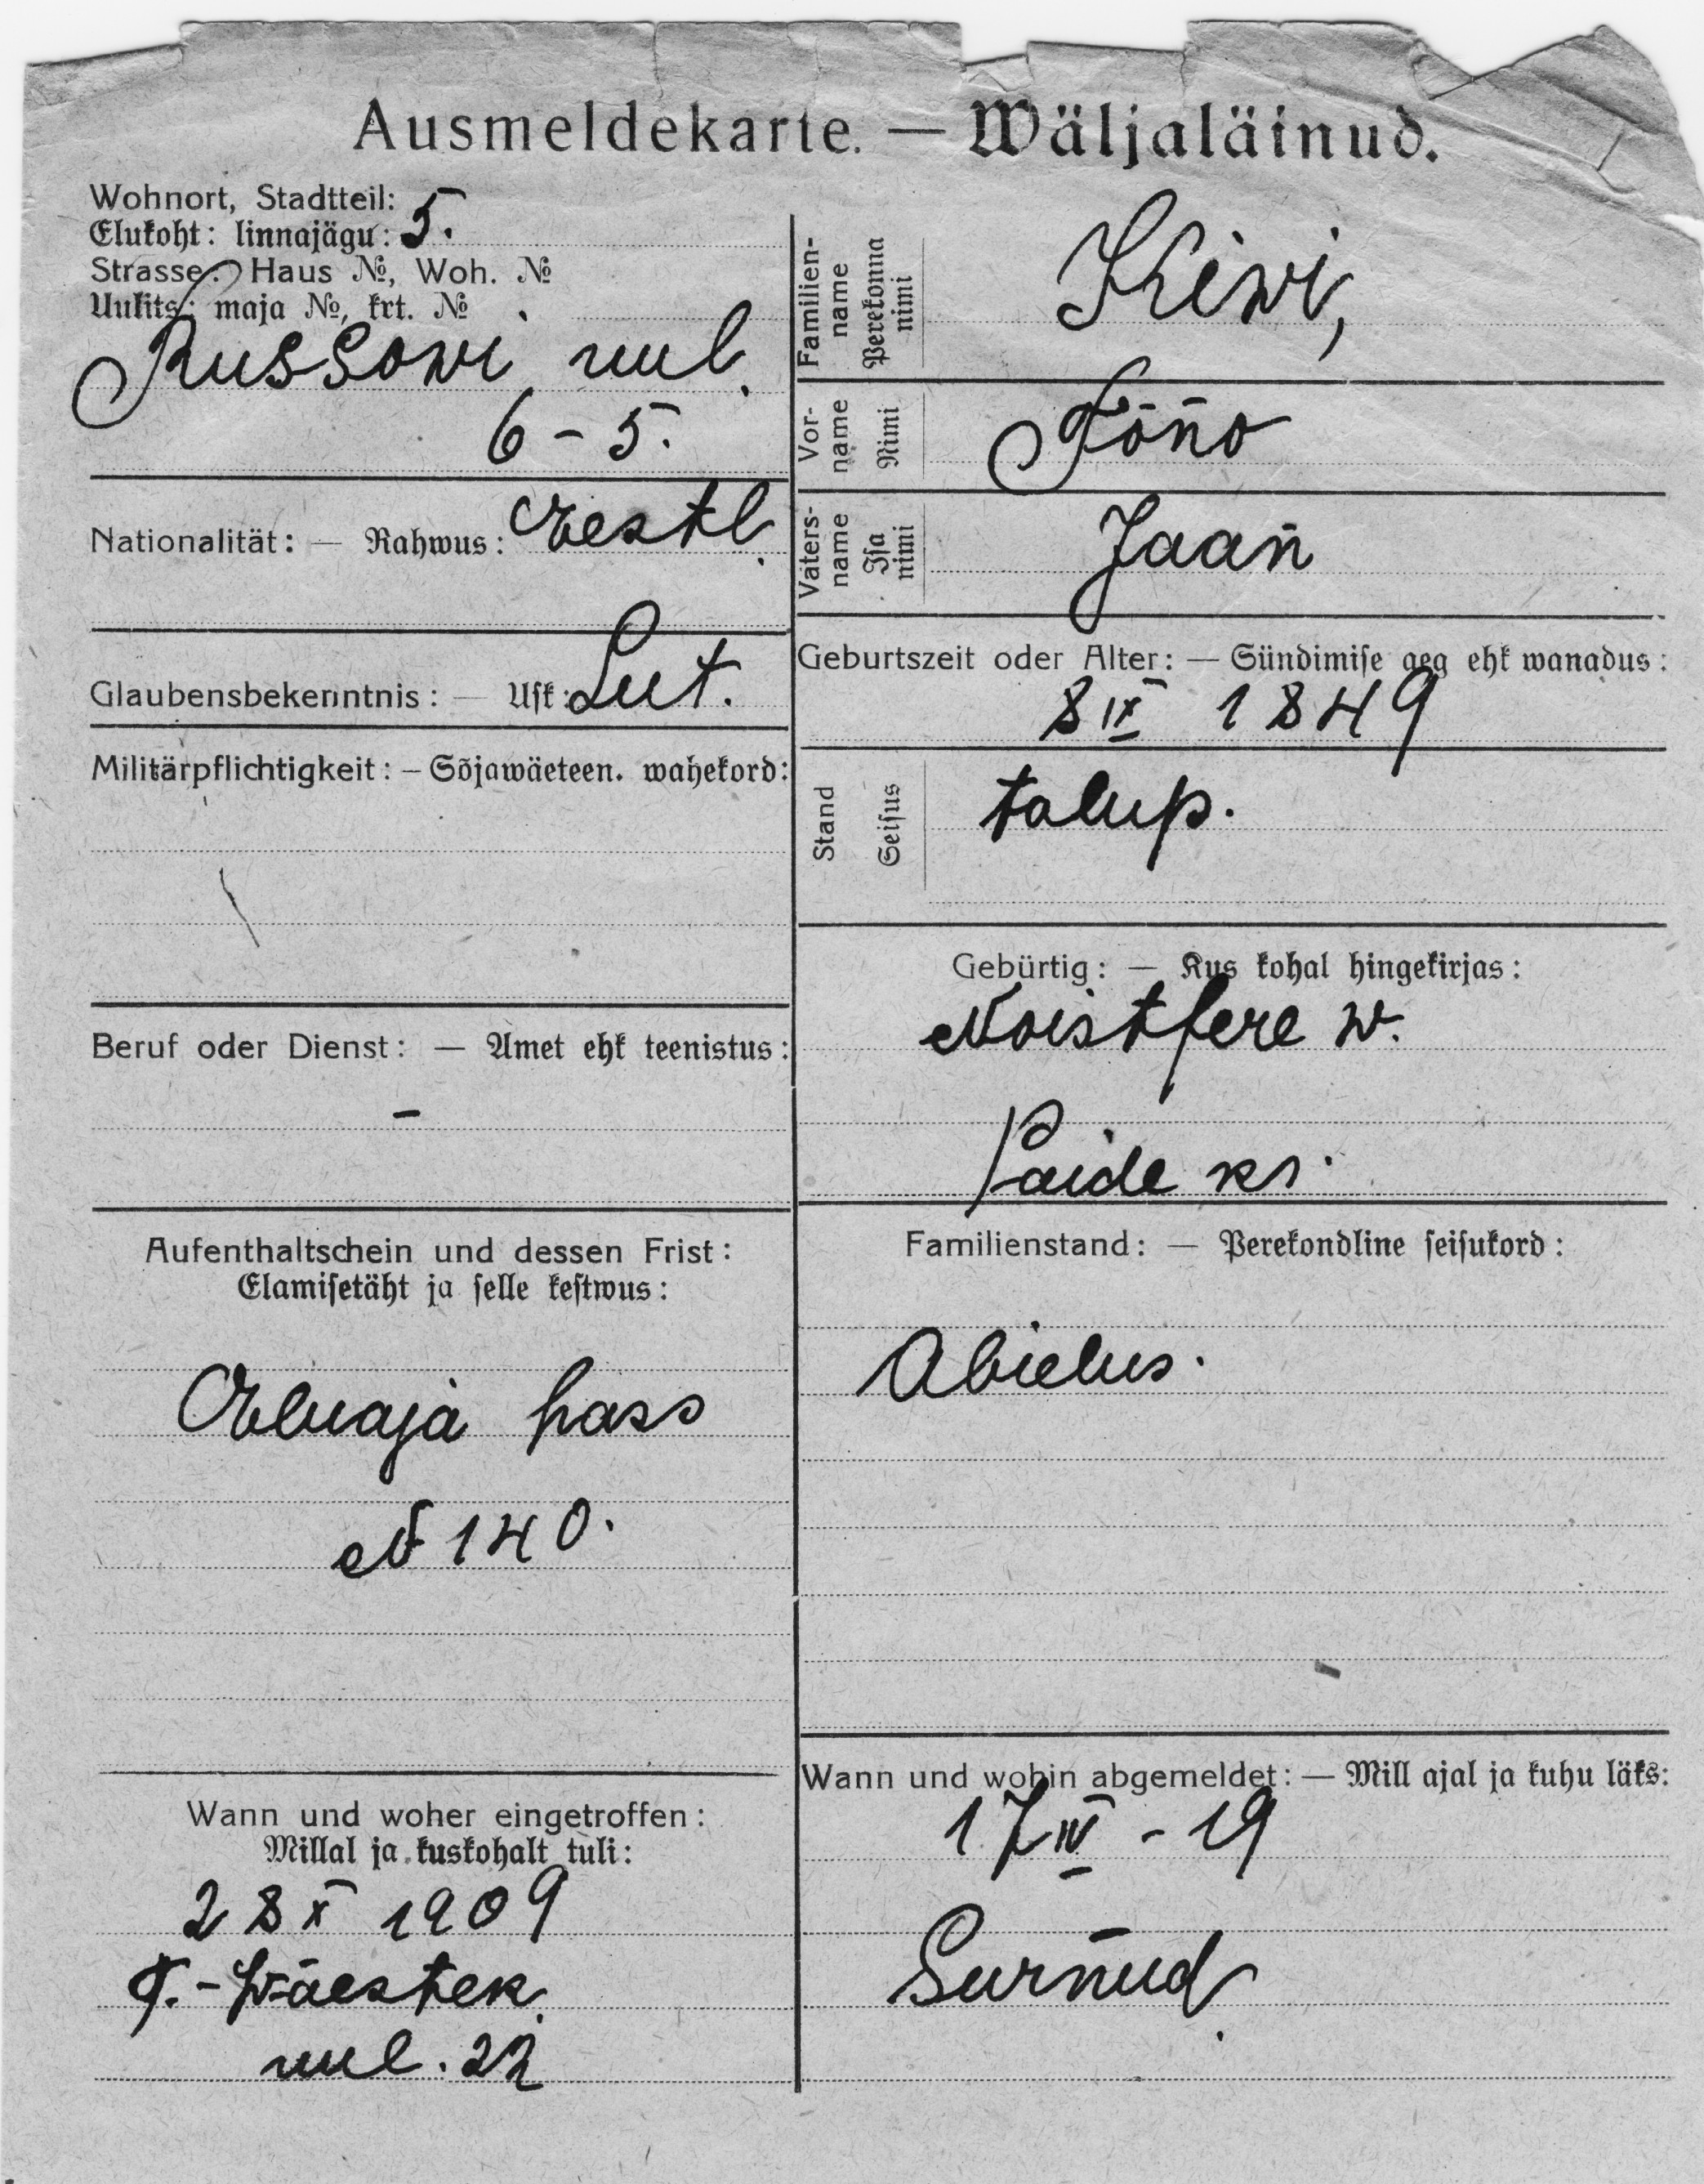 Ausmeldekarte. — Wäljaläinud.
Wohnort, Stadtteil:
Elukoht: linnajägu: 5.
Strasse: Haus №, Woh. №
Uulits: maja №, krt. №
Russowi uul.
6 - 5.
Nationalität: — Rahwus: Eestl.
Glaubensbekenntnis: — Usk: Lut.
Militärpflichtigkeit: – Sõjawäeteen. wahekord:
Beruf oder Dienst: — Amet ehk teenistus:
–
Aufenthaltschein und dessen Frist:
Elamisetäht ja selle kestwus:
Eluaja pass
N 140.
Wann und woher eingetroffen:
Millal ja kuskohalt tuli:
28 X 1909
T.-Wäestek.
uul. 22
Familien-
name
Perekonna
nimi
Kiwi,
Vor-
name
Nimi
Tõno
Vaters-
name
Isa
nimi
Jaan
Geburtszeit oder Alter: — Sündimise aeg ehk wanadus:
8 IX 1849
Stand
Seisus
talup.
Gebürtig: — Kus kohal hingekirjas:
Noistfere w.
Paide kr.
Familienstand: — Perekondline seisukord:
Abielus.
Wann und wohin abgemeldet: — Mill ajal ja kuhu läks:
17 IV - 19
Surnud.